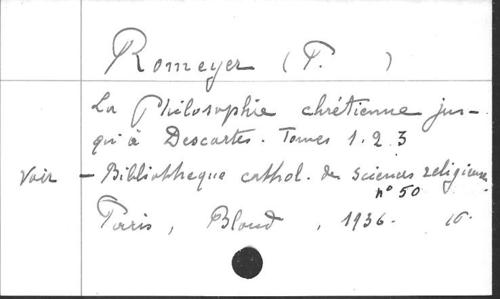 Romeyer (P. )
La Philosophie chrétienne jus-
qu'à Descartes. Tomes 1.2.3
Voir - Bibliothèque cathol. des sciences religieuses
n° 50
Paris, Bloud, 1936. 16.